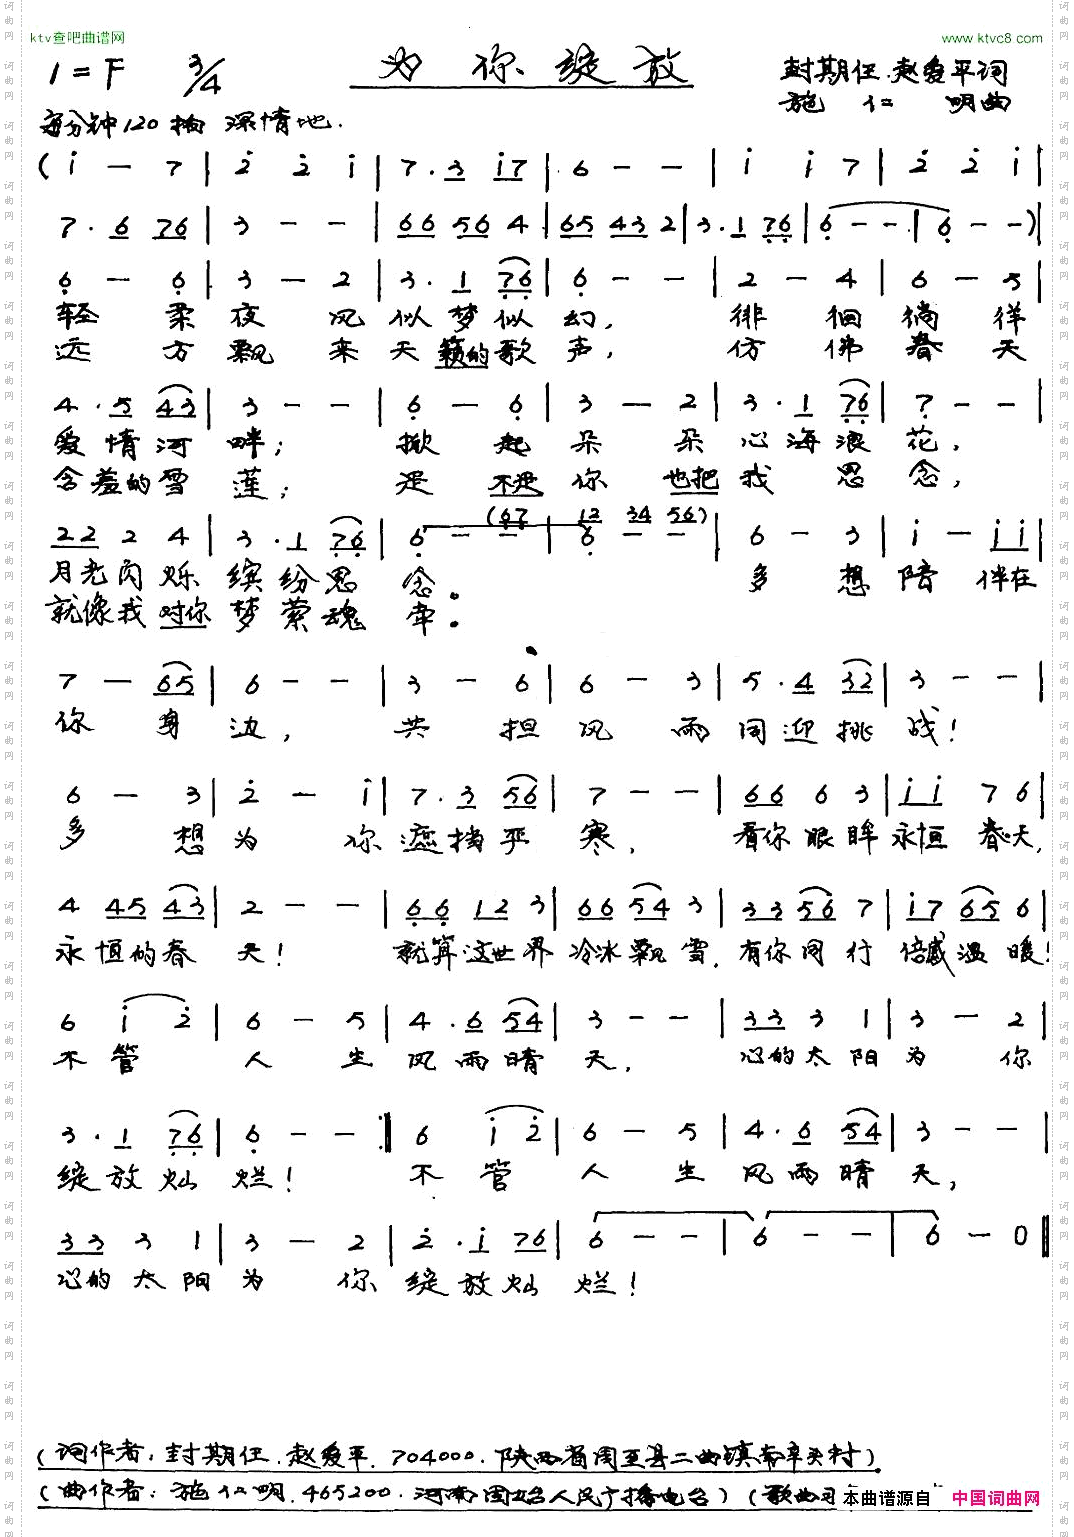 ktv查吧曲谱网
www.ktvc8.com
1=F 3/4 为你绽放 封期任.赵爱平词
施仁明曲
每分钟120拍 深情地.
(i — 7 | 2̇ 2̇ i | 7 · 3 i7 | 6 — — | i i 7 | 2̇ 2̇ i |
7 · 6 76 | 3 — — | 66 56 4 | 65 43 2 | 3 · 1 76 | 6 — — | 6 — —)|
6 — 6 | 3 — 2 | 3 · 1 76 | 6 — — | 2 — 4 | 6 — 5
轻柔夜风似梦似幻, 徘徊徜徉
远方飘来天籁的歌声, 仿佛春天
4 · 5 43 | 3 — — | 6 — 6 | 3 — 2 | 3 · 1 76 | 7 — — |
爱情河畔; 掀起朵朵心海浪花,
含羞的雪莲; 是不是你也把我思念,
(67 12 34 56)
22 2 4 | 3 · 1 76 | 6 — — | 6 — — | 6 — 3 | i — ii |
月光闪烁缤纷思念. 多想陪伴在
就像我对你梦萦魂牵.
7 — 65 | 6 — — | 3 — 6 | 6 — 3 | 5 · 4 32 | 3 — — |
你身边, 共担风雨同迎挑战!
6 — 3 | 2̇ — i | 7 · 3 56 | 7 — — | 66 6 3 | ii 7 6 |
多想为你遮挡严寒, 看你眼眸永恒春天,
4 45 43 | 2 — — | 66 12 3 | 66 54 3 | 33 56 7 | i7 65 6 |
永恒的春天! 就算这世界冷冰飘雪, 有你同行倍感温暖!
6 i 2̇ | 6 — 5 | 4 · 6 54 | 3 — — | 33 3 1 | 3 — 2 |
不管人生风雨晴天, 心的太阳为你
3 · 1 76 | 6 — — :| 6 i 2̇ | 6 — 5 | 4 · 6 54 | 3 — — |
绽放灿烂! 不管人生风雨晴天,
33 3 1 | 3 — 2 | 2̇ · i 76 | 6 — — | 6 — — | 6 — 0 ‖
心的太阳为你绽放灿烂!
(词作者:封期任.赵爱平.704000.陕西省周至县二曲镇南辛头村).
(曲作者:施仁明.465200.河南固始人民广播电台) (歌曲 本曲谱源自 中国词曲网